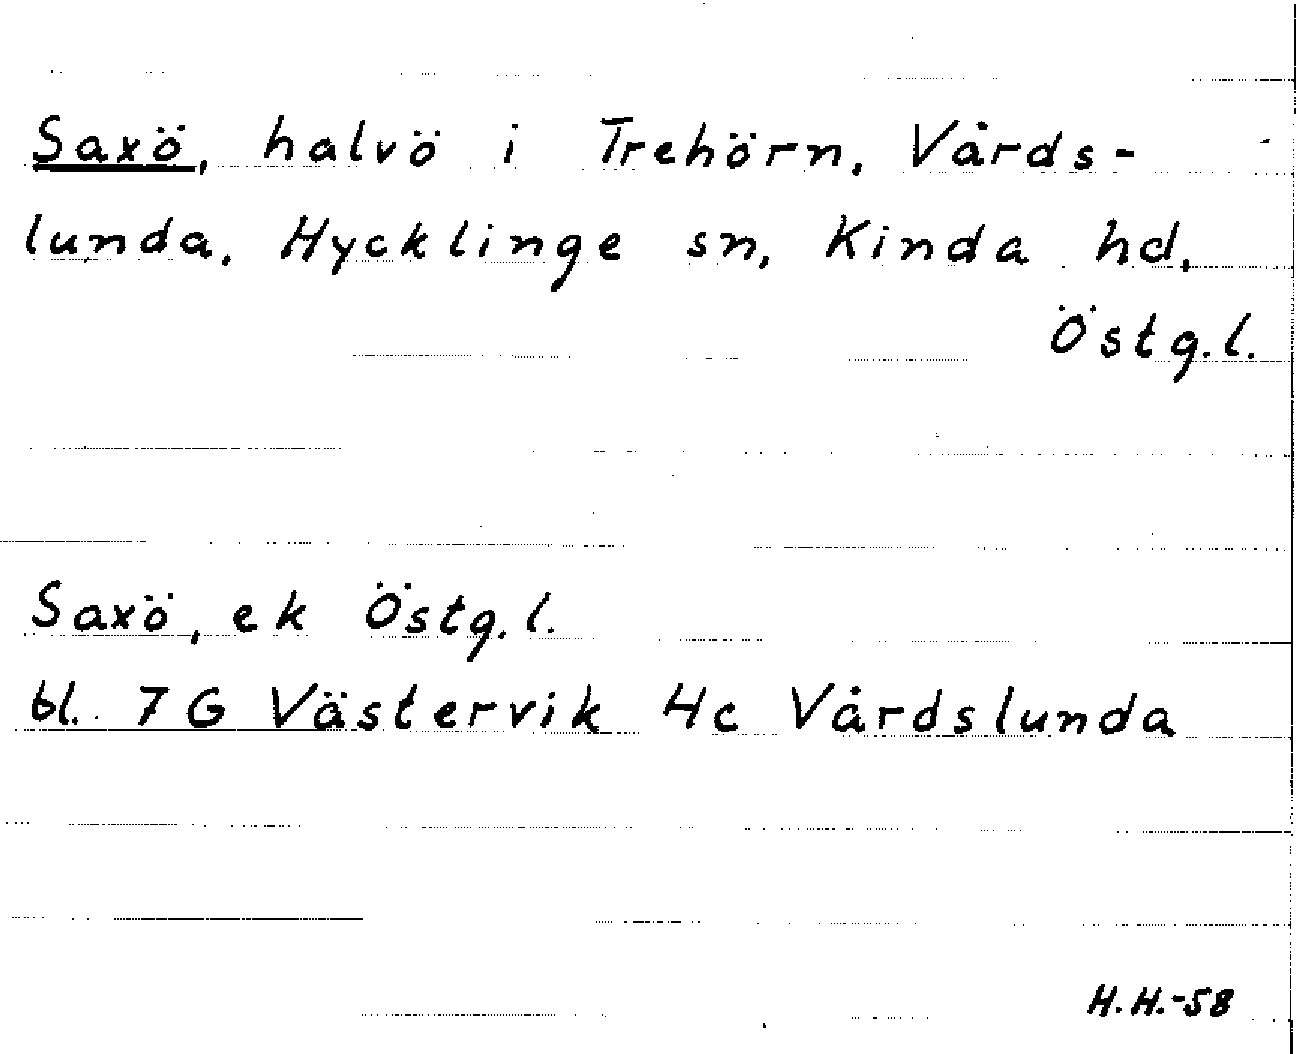 Saxö, halvö i Trehörn, Vårds-
lunda, Hycklinge sn, Kinda hd,
Östg.l.
Saxö, ek Östg.l.
bl. 7 G Västervik 4c Vårdslunda
H.H.-58